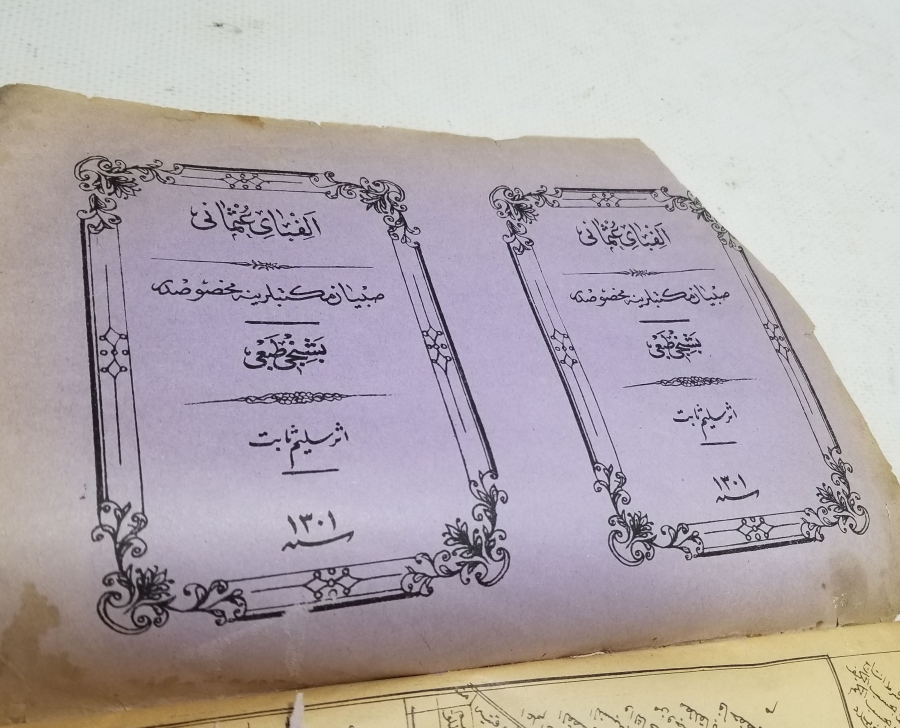 اَلِفْبَایِ عُثْمَانِی
صبیان مکتبلرینه مخصوصدر
بَشِنْجِی طَبْعِی
اثر سلیم ثابت
١٣٠١
سنه
اَلِفْبَایِ عُثْمَانِی
صبیان مکتبلرینه مخصوصدر
بَشِنْجِی طَبْعِی
اثر سلیم ثابت
١٣٠١
سنه